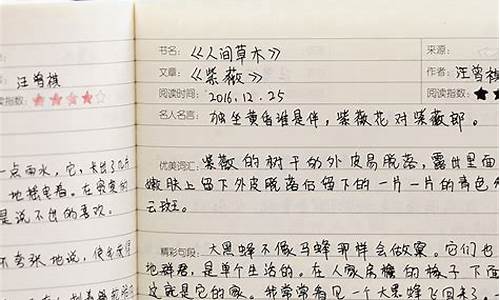 汪曾祺
阅读指数：★★★★☆
一点雨水，它，长出了几片
地摇曳着。在寂寞的
是说不出的喜欢。
不夸张地说，使我觉得
书名：《人间草木》
来源：
文章：《紫薇》
作者：汪曾祺
阅读时间：2016.12.25
阅读指数：★★
名人名言：独坐黄昏谁是伴，紫薇花对紫薇郎。
优美词汇：紫薇的树干的外皮易脱落，露出里面
嫩肤上留下外皮脱落后留下的一片一片的青色
云斑。
精彩句段：大黑蜂不像马蜂那样会做窠。它们也
地群居，是单个生活的。在人家房檐的椽子下面
这就是它的家。我常常看见一个大黑蜂飞回来了